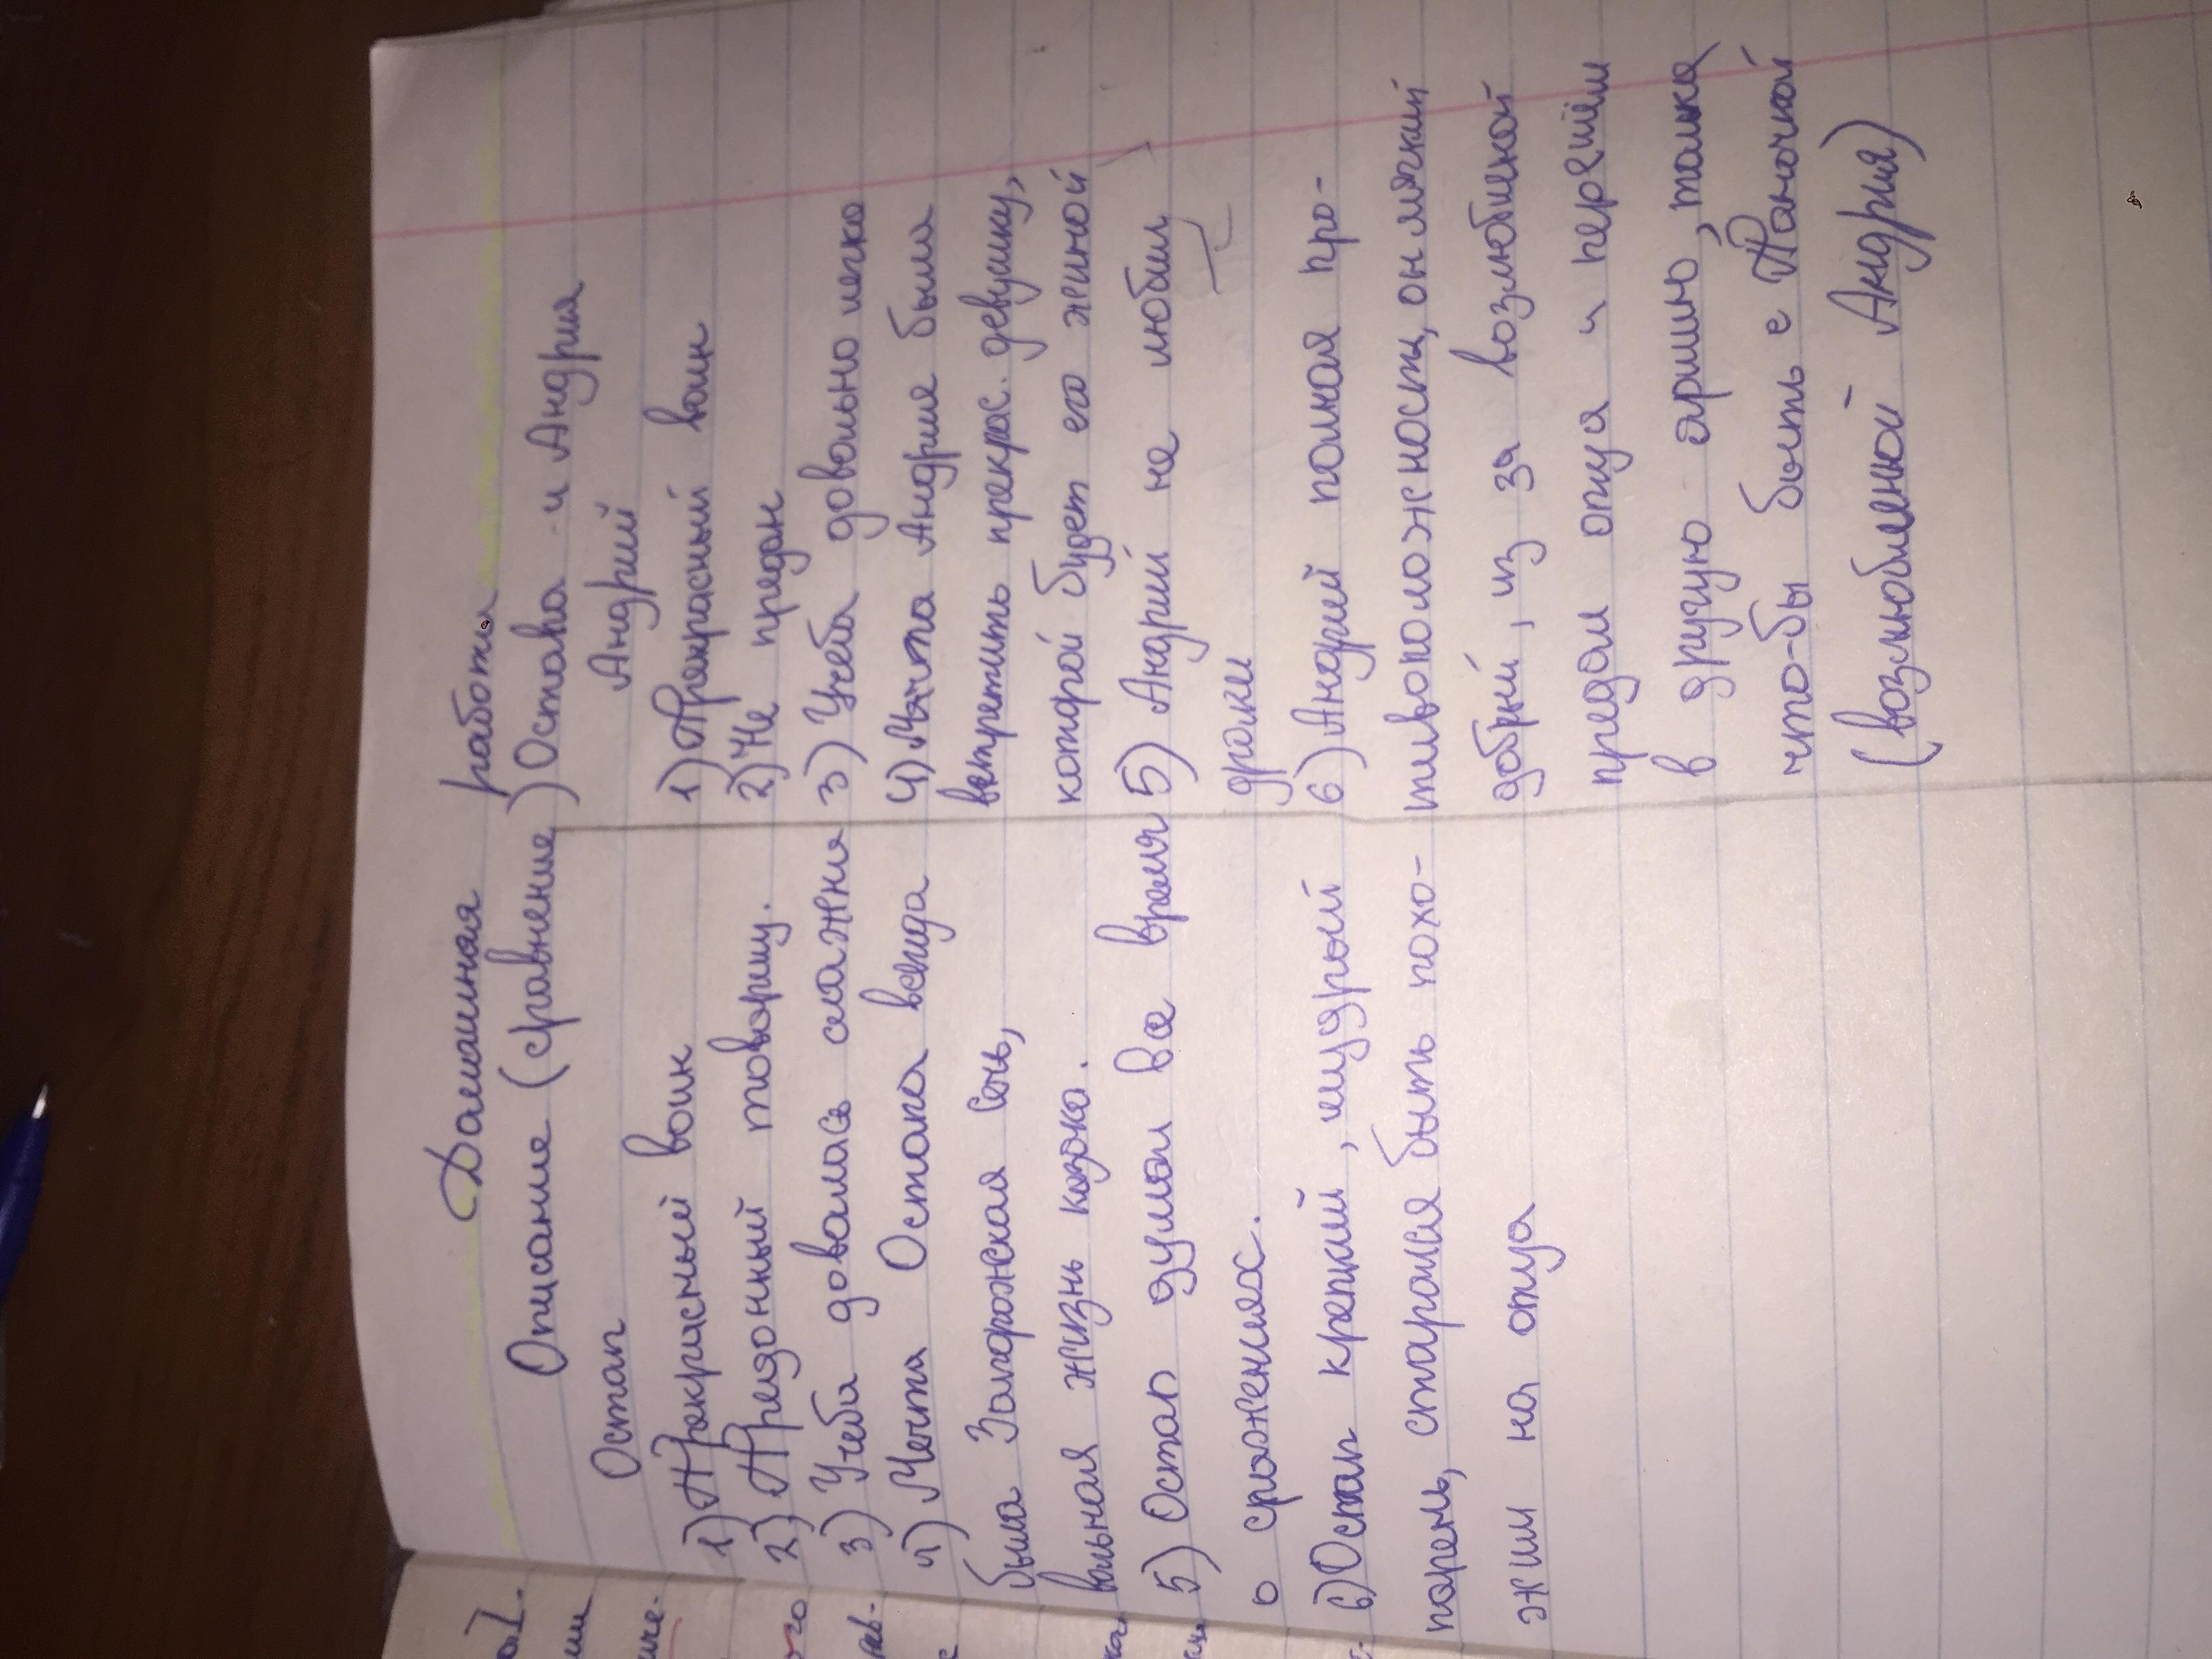 Домашная работа
Описание (сравнение) Остапа и Андрия
Остап
1) Прекрасный воин
2) Преданный товарищ.
3) Учеба довалась сложно
4) Мечта Остапа всегда
была Запорожская Сечь,
вольная жизнь казака.
5) Остап думал все время
о сражениях.
6) Остап крепкий, мудрый
парень, старался быть похо-
жим на отца
Андрий
1) Прекрасный воин
2) Не предан
3) Учеба довольно легко
4) Мечта Андрия была
встретить прекрас. девушку,
которой будет его жиной
5) Андрий не любил
драки
6) Андрий полная про-
тивоположность, он мягкий
добрый, из за возлюбленой
предал отца и перешёл
в другую армию, только
что-бы быть с Паночкой
(возлюбленой Андрия)
го